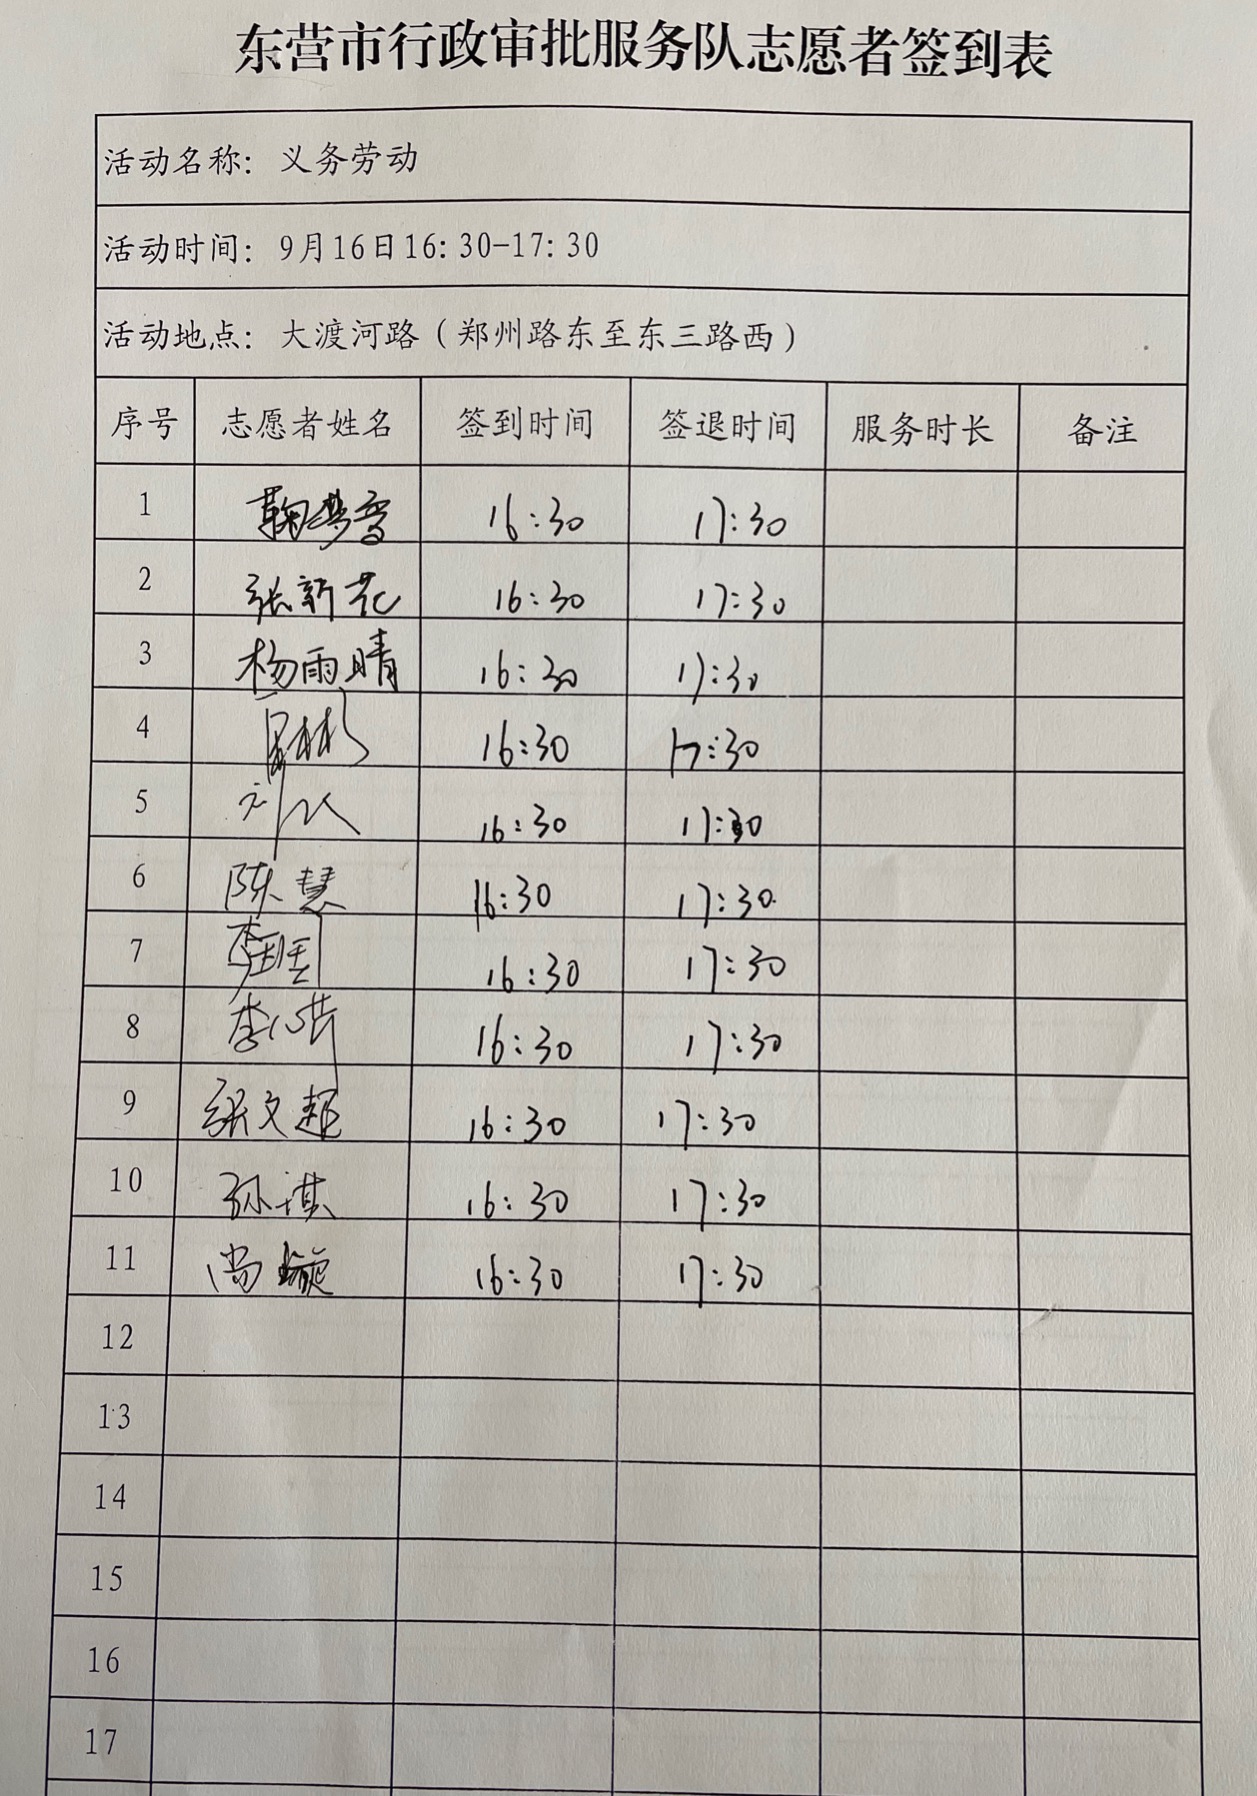 东营市行政审批服务队志愿者签到表
活动名称: 义务劳动
活动时间: 9月16日16:30-17:30
活动地点: 大渡河路(郑州路东至东三路西)
序号 志愿者姓名 签到时间 签退时间 服务时长 备注
1 16:30 17:30
2 张新花 16:30 17:30
3 杨雨晴 16:30 17:30
4 16:30 17:30
5 16:30 17:30
6 陈慧 16:30 17:30
7 16:30 17:30
8 16:30 17:30
9 张文超 16:30 17:30
10 孙琪 16:30 17:30
11 尚璇 16:30 17:30
12
13
14
15
16
17